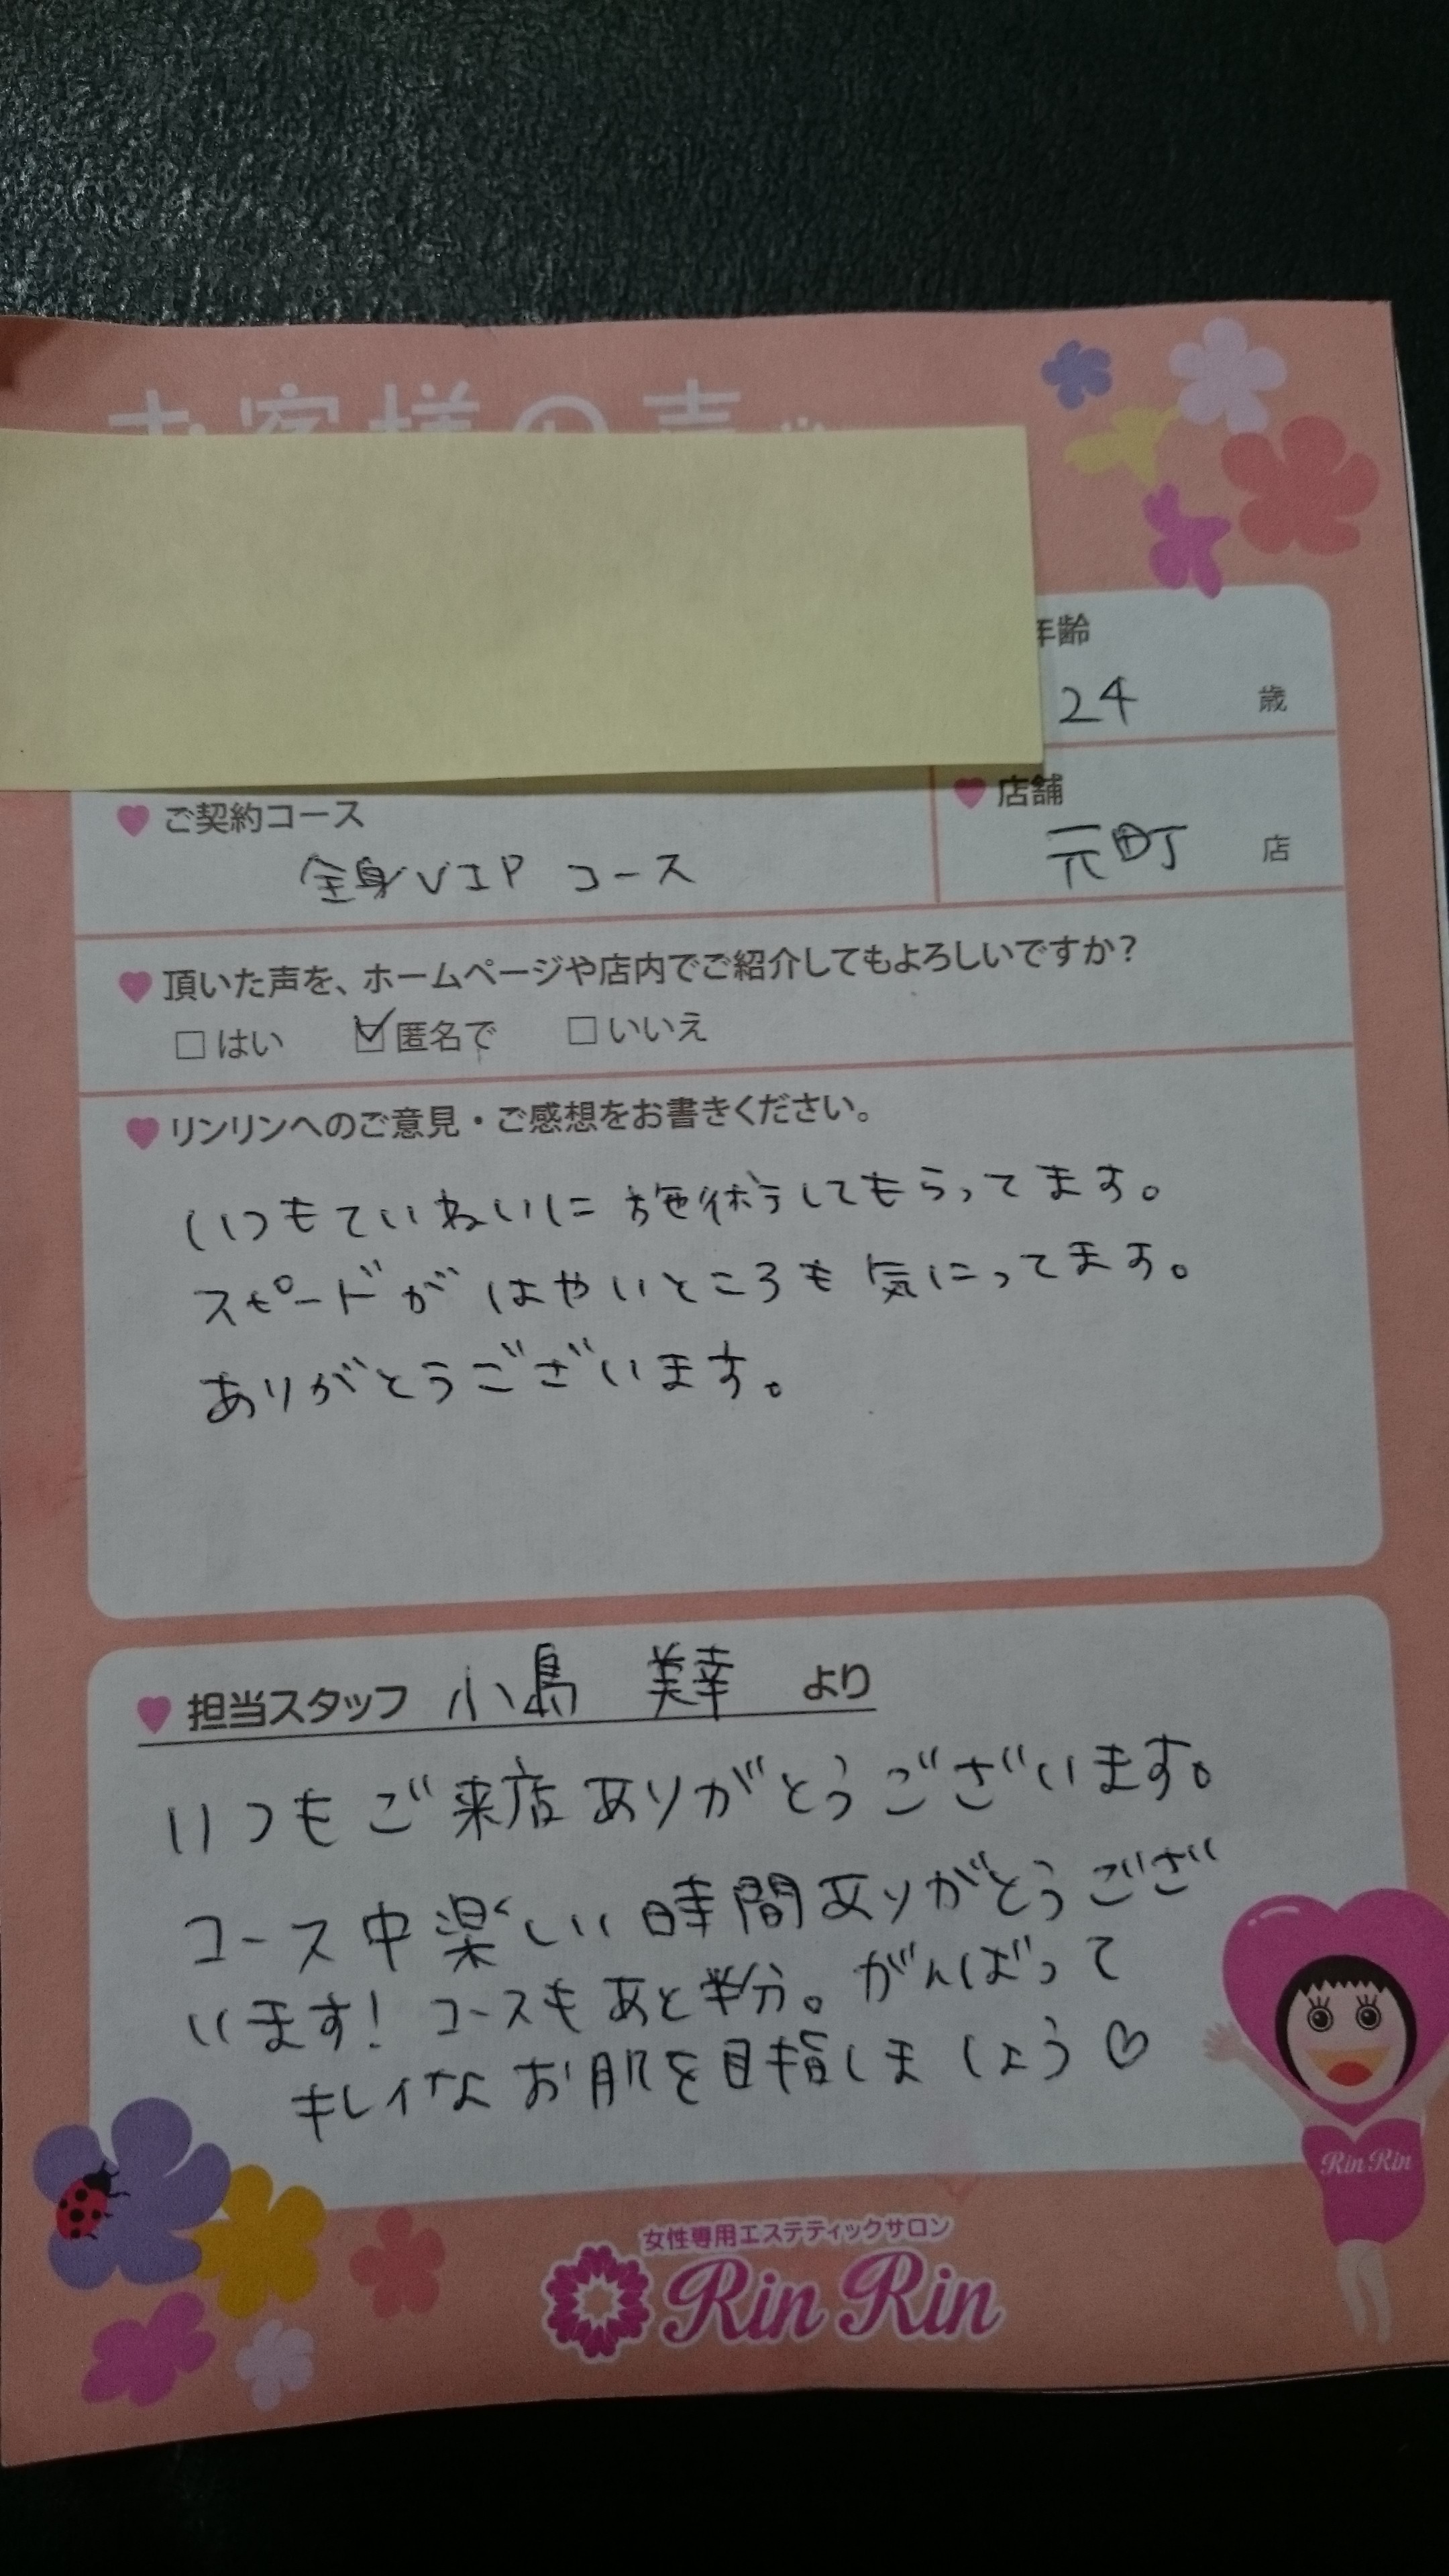 お客様の声
年齢
24 歳
ご契約コース
全身VIP コース
店舗
元町 店
頂いた声を、ホームページや店内でご紹介してもよろしいですか?
□はい ☑匿名で □いいえ
リンリンへのご意見・ご感想をお書きください。
いつもていねいに施術してもらってます。
スピードがはやいところも気にってます。
ありがとうございます。
担当スタッフ 小島 美幸 より
いつもご来店ありがとうございます。
コース中楽しい時間ありがとうござ
います!コースもあと半分。がんばって
キレイなお肌を目指しましょう♡
Rin Rin
女性専用エステティックサロン
Rin Rin